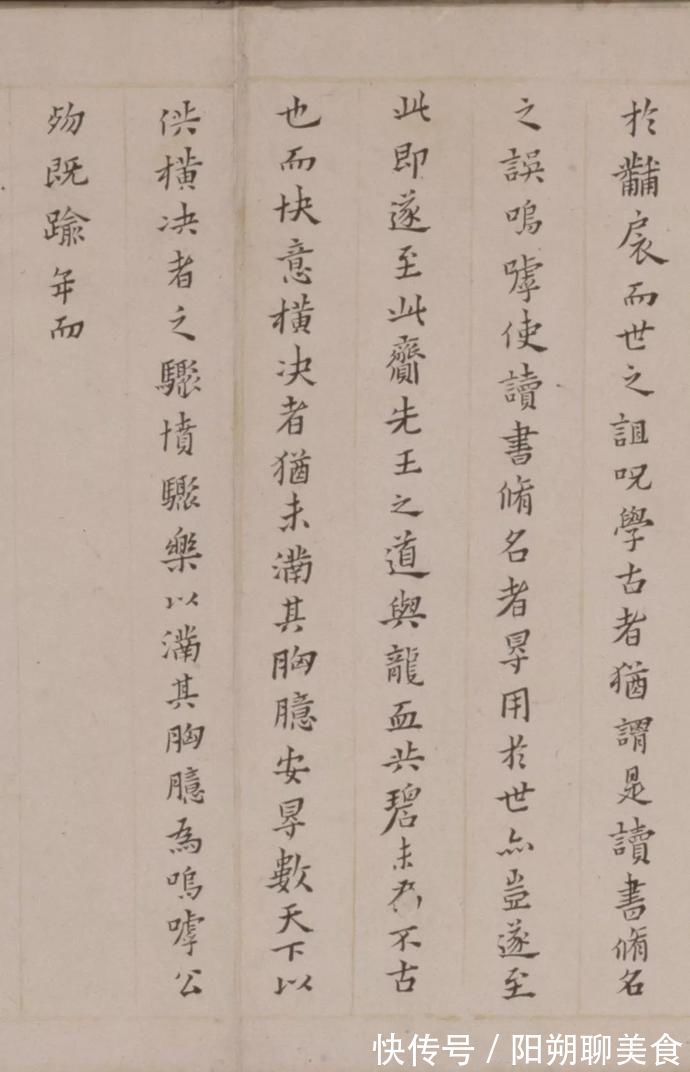 於黼扆而世之詛呪學古者猶謂是讀書脩名
之誤嗚嘑使讀書脩名者㝵用於世亦豈遂至
此即遂至此齎先王之道與龍血共碧未為不古
也而快意橫決者猶未滿其胸臆安㝵數天下以
供橫決者之驟墳驟樂以滿其胸臆為嗚嘑公
歾既踰年而
快传号／阳朔聊美食